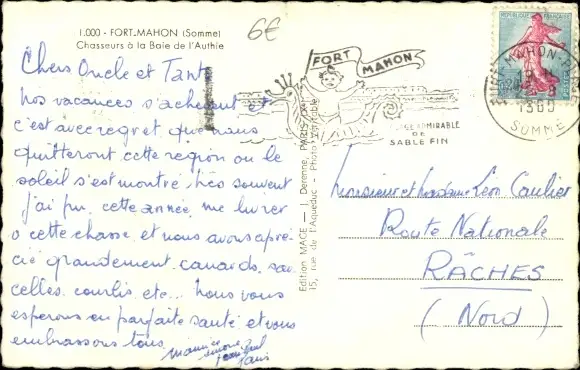 1.000 - FORT-MAHON (Somme)
Chasseurs à la Baie de l'Authie
6€
Chers Oncle et Tante
Nos vacances s'achèvent et
c'est avec regret que nous
quitterons cette région où le
soleil s'est montré très souvent
j'ai pu, cette année, me livrer
à cette chasse et nous avons apré-
cié grandement canards, sar-
celles, courlis, etc... Nous vous
espérons en parfaite santé et vous
embrassons tous
Maurice
Simone
Edition MAGE — J. Derenne, PARIS
15, rue de l'Aqueduc - Photo Véritable
FORT MAHON
ADMIRABLE
DE
SABLE FIN
REPUBLIQUE FRANÇAISE
FORT-MAHON-P
1960
SOMME
Monsieur et Madame Léon Caulier
Route Nationale
RÂCHES
(Nord)